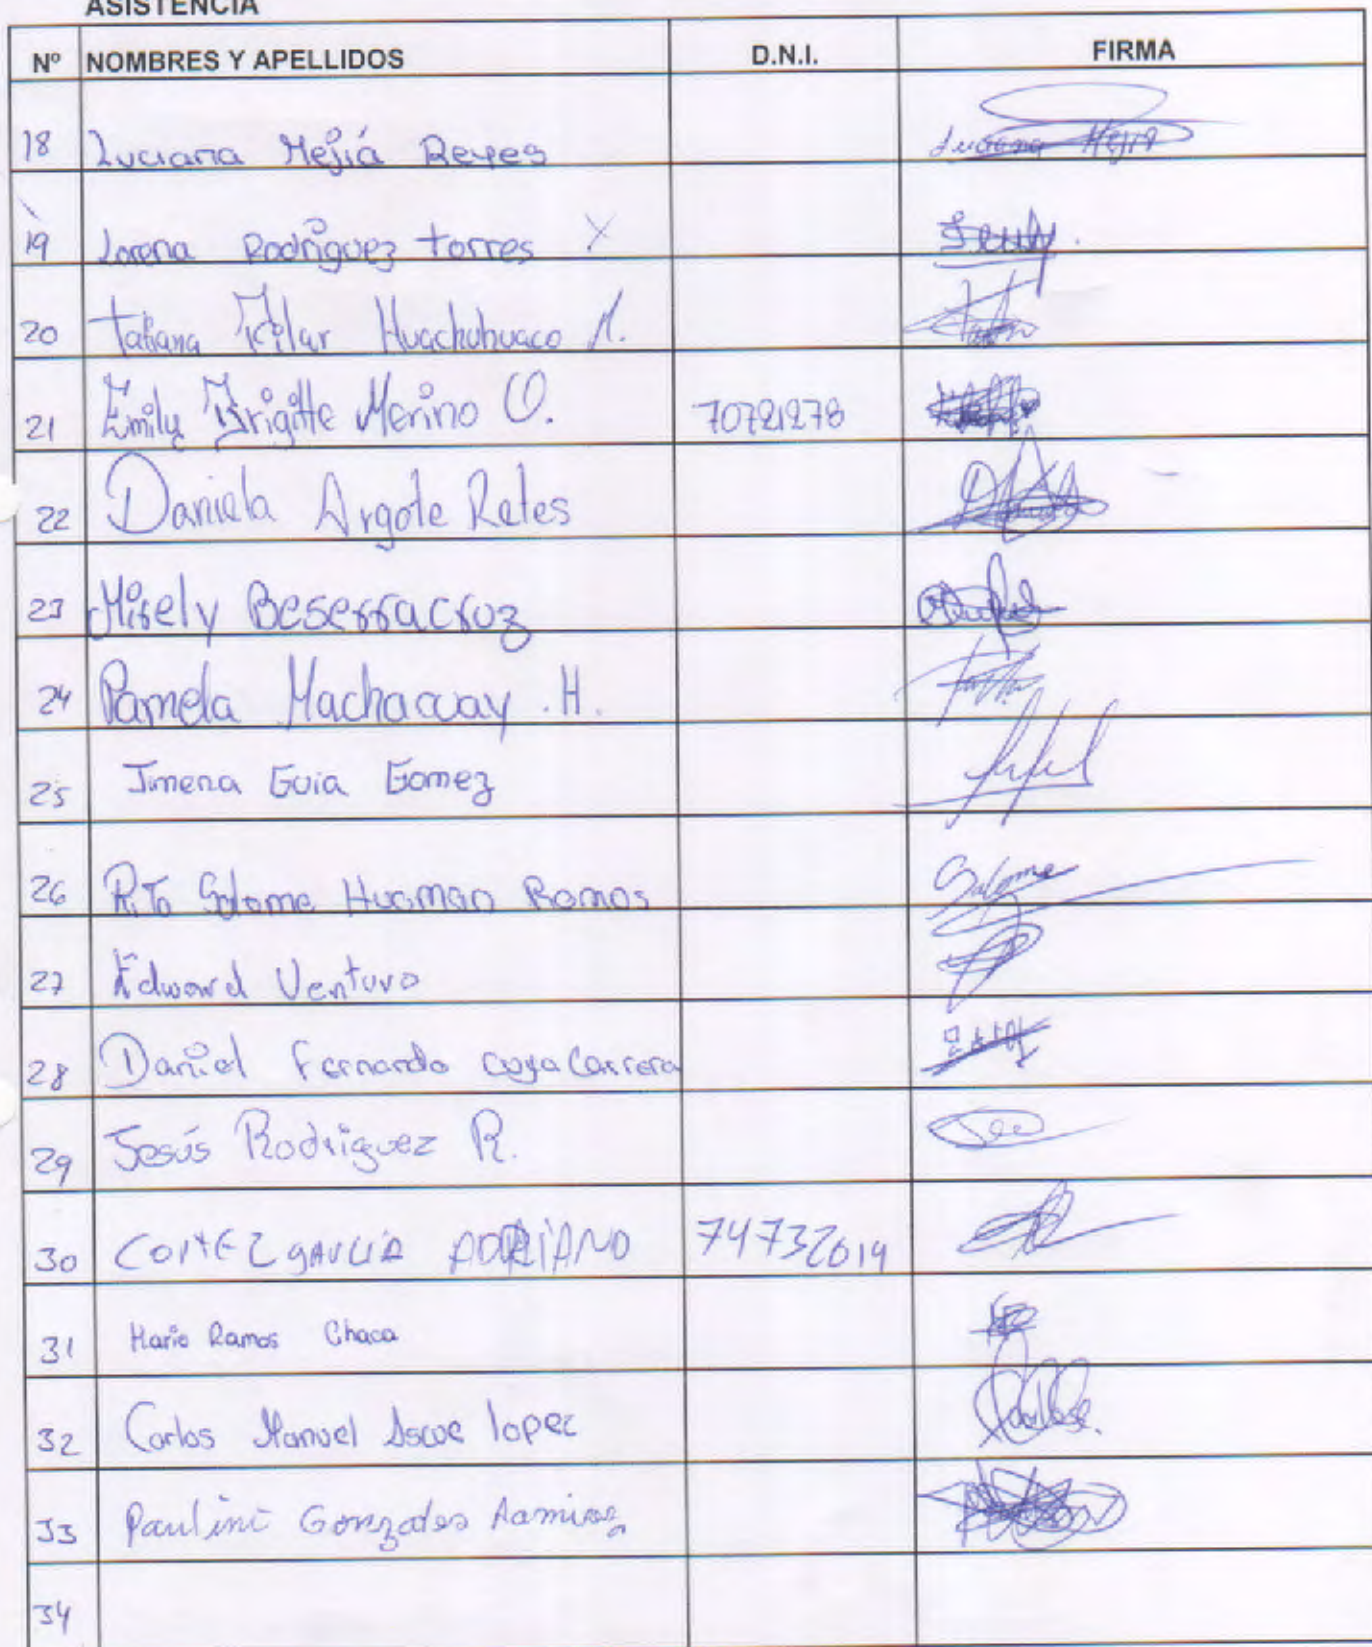 ASISTENCIA
Nº NOMBRES Y APELLIDOS D.N.I. FIRMA
18 Luciana Mejiá Reyes Luciana Mejia
19 Lorena Rodriguez torres X
20 Tatiana Pilar Huachuhuaco M.
21 Emily Brigitte Merino O. 70721278
22 Daniela Argote Retes
23 Misely Beserracruz
24 Pamela Machacuay . H.
25 Jimena Guia Gomez
26 Rita Salome Huaman Ramos Salome
27 Edward Ventura
28 Daniel Fernando Coya Carrera
29 Jesús Rodriguez R.
30 CORTEZ gARCIA ADRIANO 74732619
31 Mario Ramos Chaca
32 Carlos Manuel Ascue lopez
33 Paulina Gonzales Ramirez
34